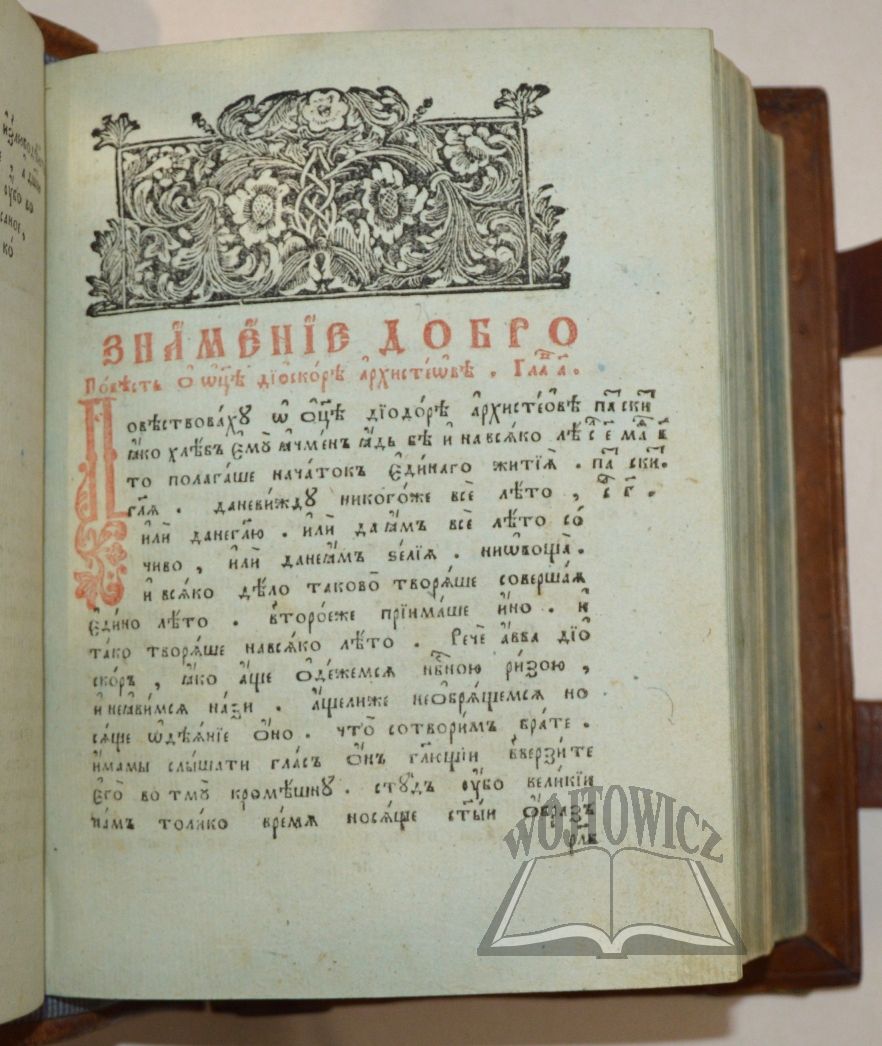 ЗНАМЕ́НЇЕ ДОБРО̀
По́вѣсть ѡ҆ ѻ҆ц҃ѣ дїѻско́рѣ а҆рхисте́ѡвѣ . Глава̀ а҃ .
Повѣствова́хꙋ ѡ҆ ѻ҆ц҃ѣ дїодо́рѣ а҆рхисте́ѡвѣ
ꙗ҆́ко хлѣ́бъ є҆мꙋ̀ ꙗ҆́чменъ ꙗ҆́дь бѣ̀ и҆ навсѧ́ко лѣ́
то полага́ше нача́токъ є҆ди́наго житїѧ̀ .
гл҃ѧ . даневи́ждꙋ никого́же всѐ лѣ́то ,
и҆лѝ данегл҃ю . и҆лѝ да ꙗ҆́мъ всѐ лѣ́то со́
чиво , и҆лѝ данеꙗ҆́мъ ѕе́лїѧ . ниѻвоща̀ .
и҆ всѧ́ко дѣ́ло таково̀ творѧ́ше соверша́ѧ
є҆ди́но лѣ́то . второ́еже прїима́ше и҆́но . и҆
та́ко творѧ́ше навсѧ́ко лѣ́то . Речѐ а҆́вва дїо́
ско́ръ , ꙗ҆́ко а҆́ще ѻ҆де́жемсѧ нб҃ною ри́зою ,
и҆ неꙗ҆ви́мсѧ на́зи . а҆́щелиже неѻбрѧ́щемсѧ но
сѧ́ще ѡ҆дѣѧ́нїе ѻ҆́но . что̀ сотвори́мъ бра́те .
и҆́мамы слы́шати гла́съ ѻ҆́нъ гл҃ющїи вве́рзите
є҆го̀ во тмꙋ̀ кромѣ́шнꙋ . стꙋ́дъ ᲂу҆́бо вели́кїи
на́мъ толи́ко вре́мѧ носѧ́ще ст҃ы́и ѻ҆́бразъ
WOJTOWICZ